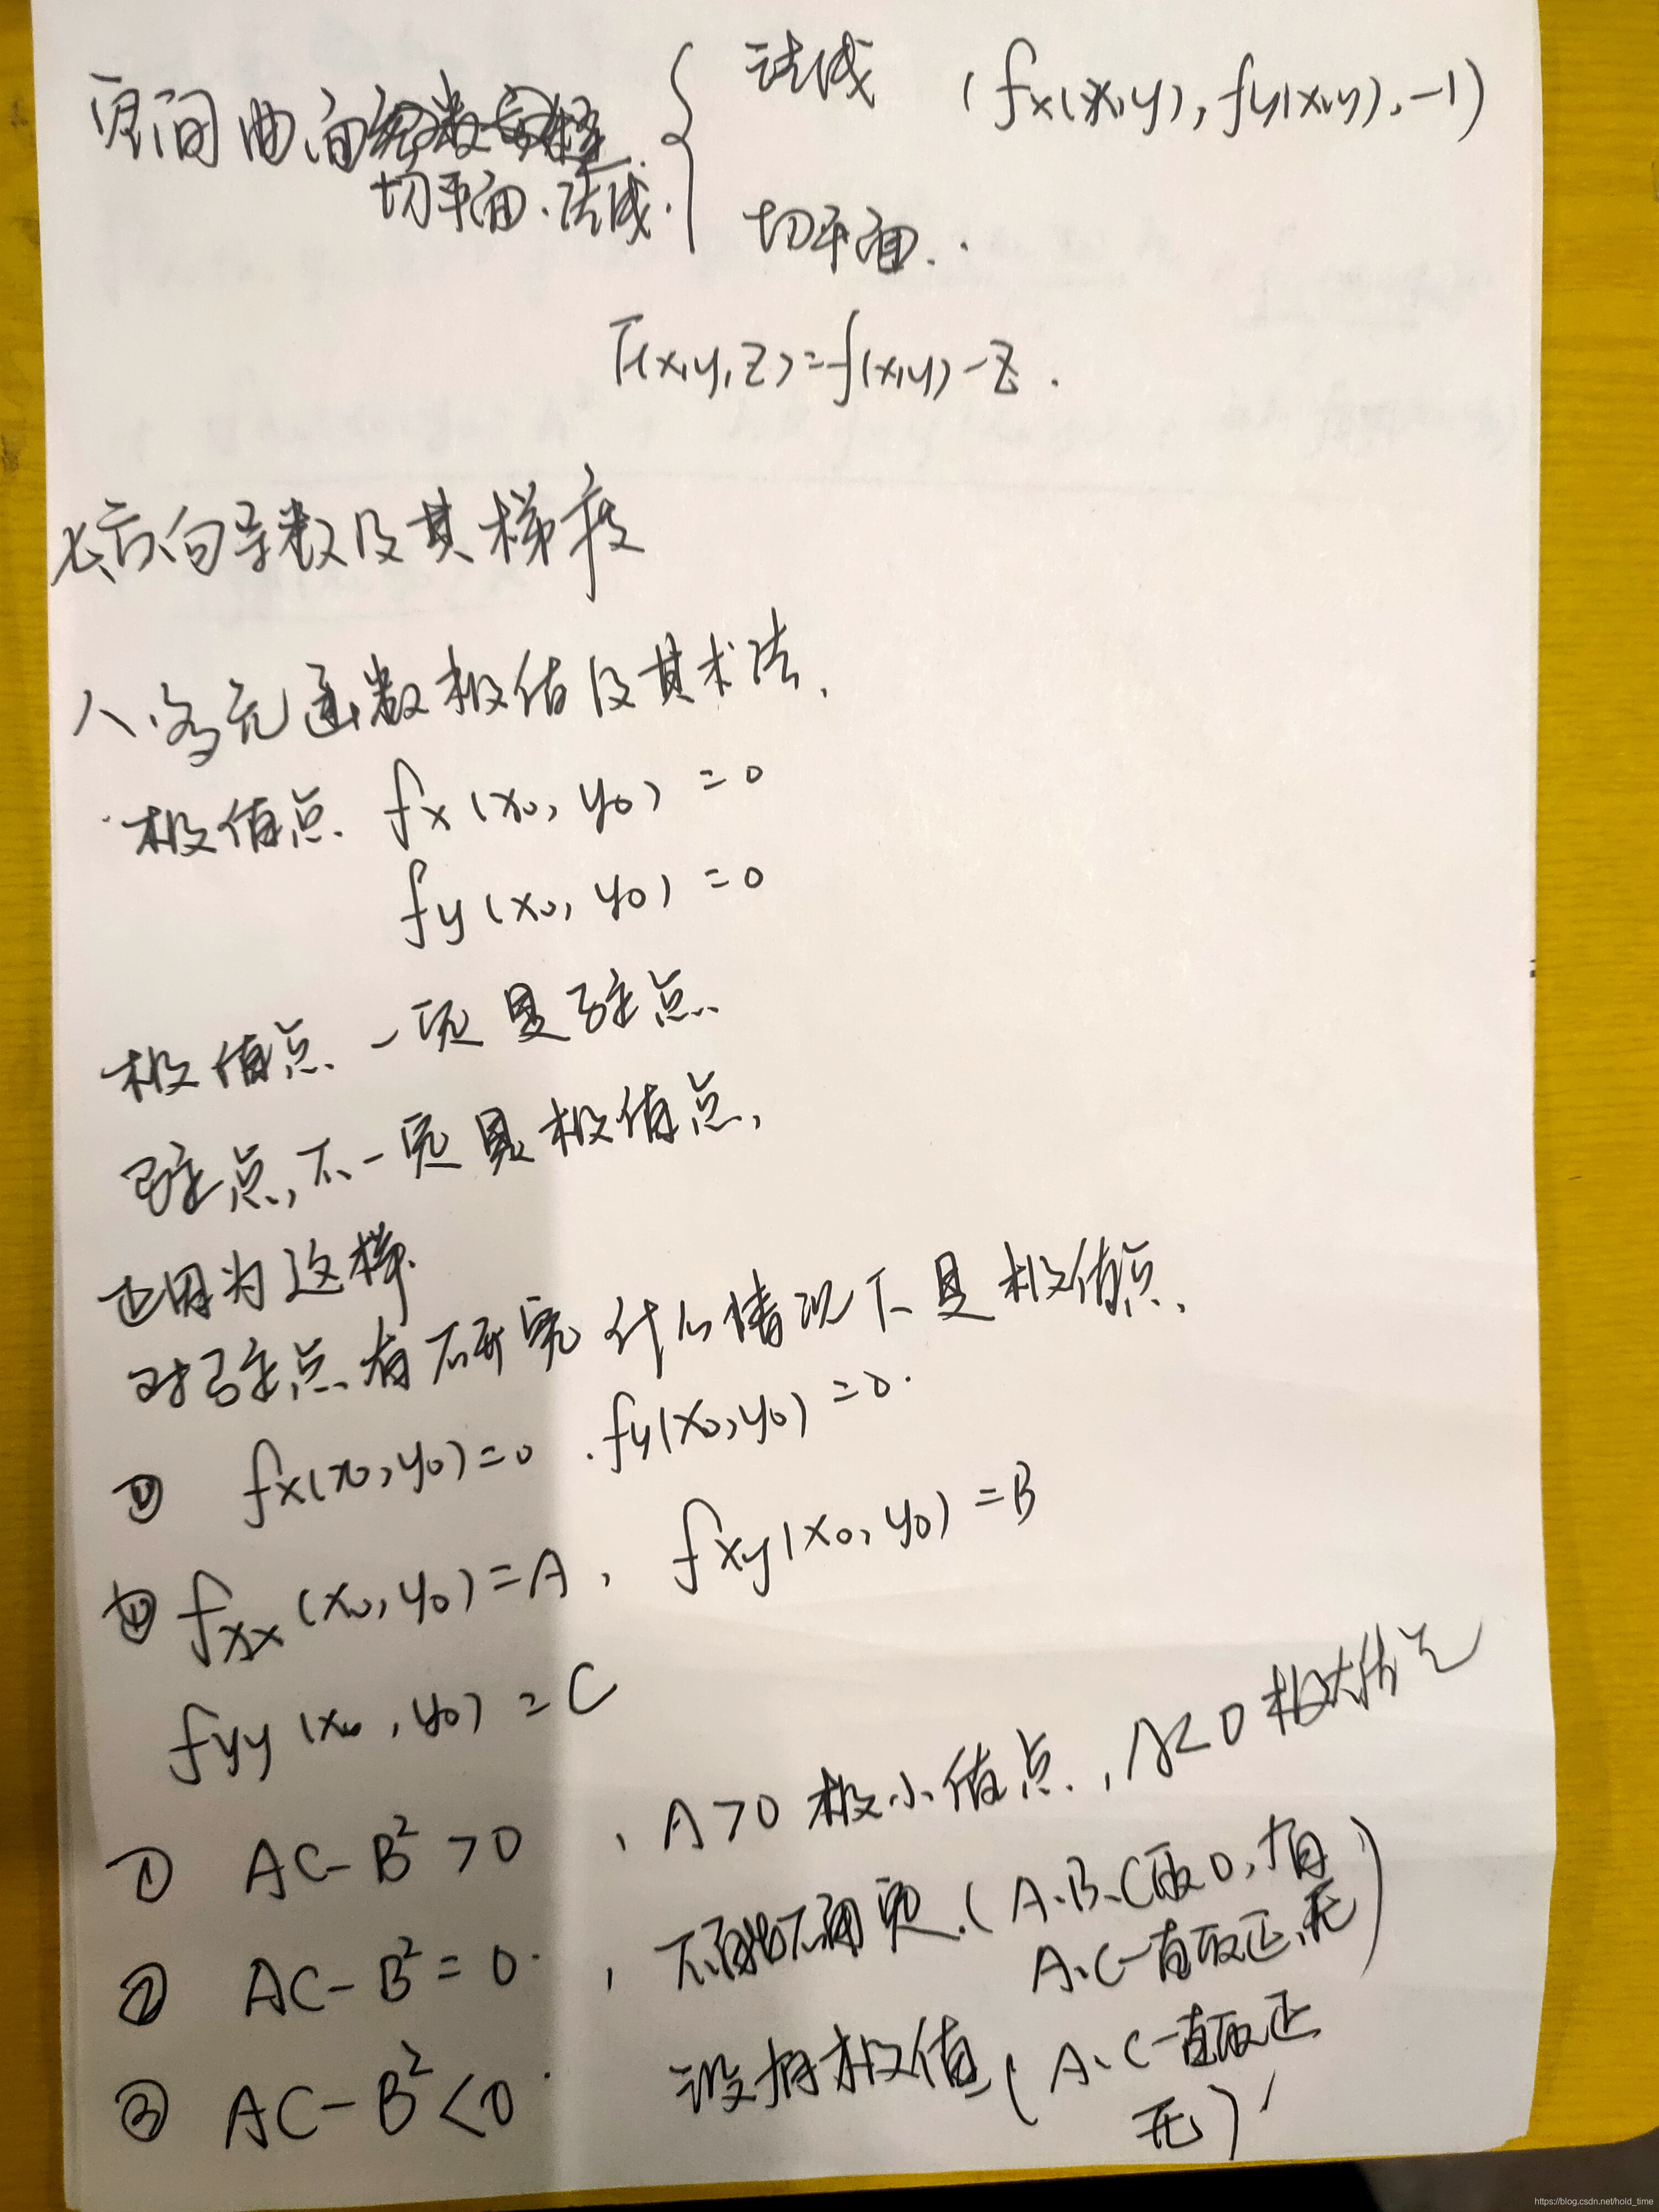 空间曲面
切平面、法线 {
法线 (fx(x,y), fy(x,y), -1)
切平面.
F(x,y,z)=f(x,y)-z.
七、方向导数及其梯度
八、多元函数极值及其求法.
极值点. fx(x0,y0)=0
fy(x0,y0)=0
极值点一定是驻点
驻点,不一定是极值点,
也因为这样.
对驻点有研究什么情况下是极值点.
① fx(x0,y0)=0 . fy(x0,y0)=0.
fxx(x0,y0)=A, fxy(x0,y0)=B
fyy(x0,y0)=C
① AC-B²>0 , A>0 极小值点., A<0 极大值点
② AC-B²=0. , 不确定.(A、B、C取0,有
A、C一直取正,无)
③ AC-B²<0. 没有极值(A、C一直取正
无)
https://blog.csdn.net/hold_time